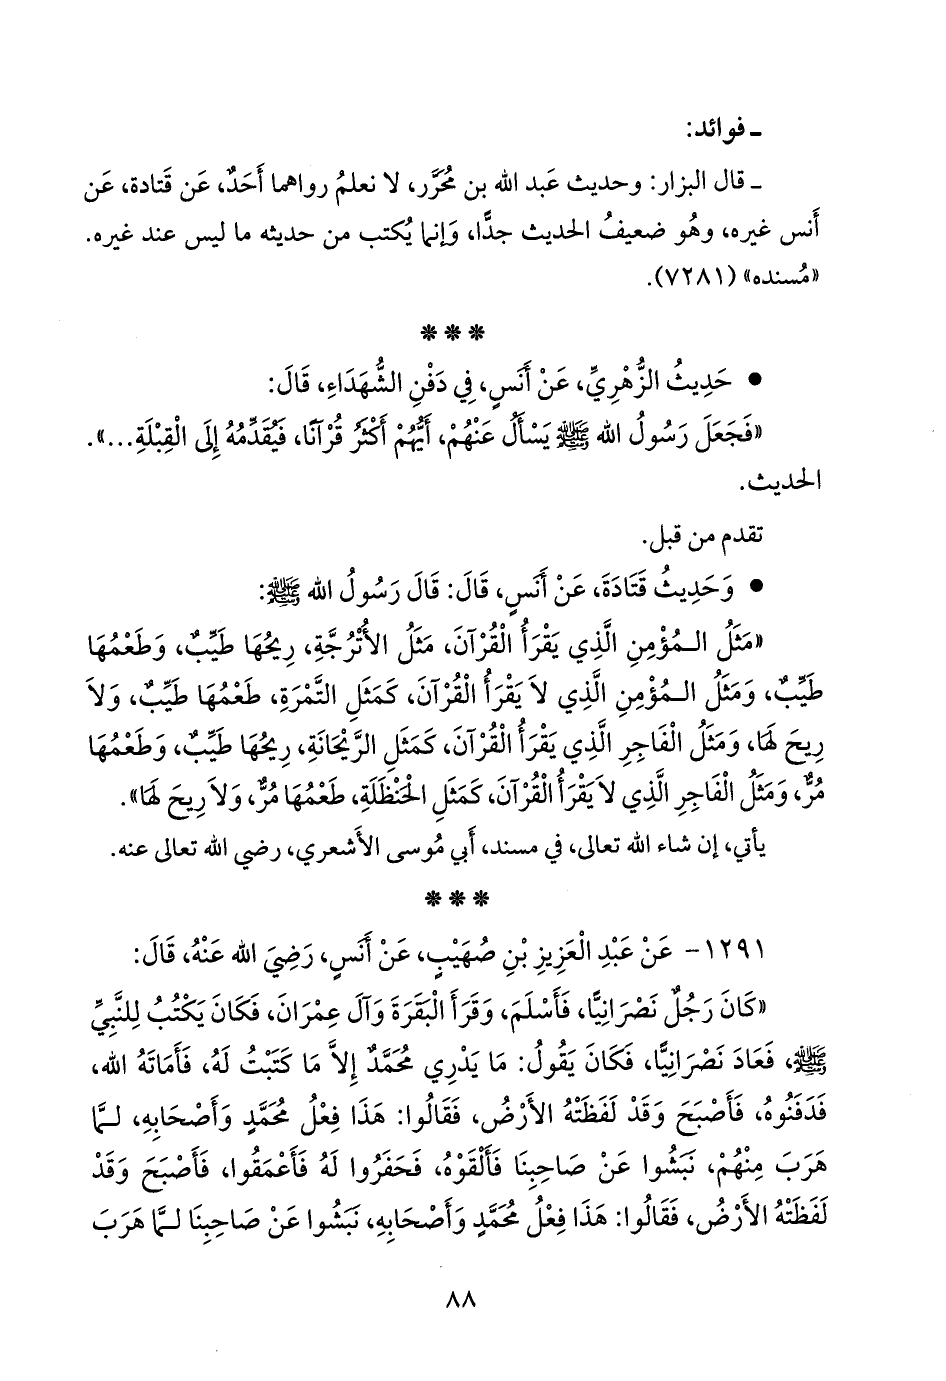 ـ فوائد:
ـ قال البزار: وحديث عَبد الله بن مُحَرَّر، لا نعلمُ رواهما أَحَدٌ، عَن قَتادة، عَن
أَنس غيره، وهُو ضعيفُ الحديث جدًّا، وَإِنما يُكتب من حديثه ما ليس عند غيره.
«مُسنده» (٧٢٨١).
***
• حَدِيثُ الزُّهْرِيِّ، عَنْ أَنَسٍ، فِي دَفْنِ الشُّهَدَاءِ، قَالَ:
«فَجَعَلَ رَسُولُ الله ﷺ يَسْأَلُ عَنْهُمْ، أَيُّهُمْ أَكْثَرُ قُرْآنًا، فَيُقَدِّمُهُ إِلَى الْقِبْلَةِ...».
الحديث.
تقدم من قبل.
• وَحَدِيثُ قَتَادَةَ، عَنْ أَنَسٍ، قَالَ: قَالَ رَسُولُ الله ﷺ:
«مَثَلُ الـمُؤْمِنِ الَّذِي يَقْرَأُ الْقُرْآنَ، مَثَلُ الأُتْرُجَّةِ، رِيحُهَا طَيِّبٌ، وَطَعْمُهَا
طَيِّبٌ، وَمَثَلُ الـمُؤْمِنِ الَّذِي لاَ يَقْرَأُ الْقُرْآنَ، كَمَثَلِ التَّمْرَةِ، طَعْمُهَا طَيِّبٌ، وَلاَ
رِيحَ لَهَا، وَمَثَلُ الْفَاجِرِ الَّذِي يَقْرَأُ الْقُرْآنَ، كَمَثَلِ الرَّيْحَانَةِ، رِيحُهَا طَيِّبٌ، وَطَعْمُهَا
مُرٌّ، وَمَثَلُ الْفَاجِرِ الَّذِي لاَ يَقْرَأُ الْقُرْآنَ، كَمَثَلِ الْحَنْظَلَةِ، طَعْمُهَا مُرٌّ، وَلاَ رِيحَ لَهَا».
يأتي، إن شاء الله تعالى، في مسند، أَبي مُوسى الأَشعري، رضي الله تعالى عنه.
***
١٢٩١- عَنْ عَبْدِ الْعَزِيزِ بْنِ صُهَيْبٍ، عَنْ أَنَسٍ، رَضِيَ الله عَنْهُ، قَالَ:
«كَانَ رَجُلٌ نَصْرَانِيًّا، فَأَسْلَمَ، وَقَرَأَ الْبَقَرَةَ وَآلَ عِمْرَانَ، فَكَانَ يَكْتُبُ لِلنَّبِيِّ
ﷺ، فَعَادَ نَصْرَانِيًّا، فَكَانَ يَقُولُ: مَا يَدْرِي مُحَمَّدٌ إِلاَّ مَا كَتَبْتُ لَهُ، فَأَمَاتَهُ الله،
فَدَفَنُوهُ، فَأَصْبَحَ وَقَدْ لَفَظَتْهُ الأَرْضُ، فَقَالُوا: هَذَا فِعْلُ مُحَمَّدٍ وَأَصْحَابِهِ، لـمَّا
هَرَبَ مِنْهُمْ، نَبَشُوا عَنْ صَاحِبِنَا فَأَلْقَوْهُ، فَحَفَرُوا لَهُ فَأَعْمَقُوا، فَأَصْبَحَ وَقَدْ
لَفَظَتْهُ الأَرْضُ، فَقَالُوا: هَذَا فِعْلُ مُحَمَّدٍ وَأَصْحَابِهِ، نَبَشُوا عَنْ صَاحِبِنَا لـمَّا هَرَبَ
٨٨